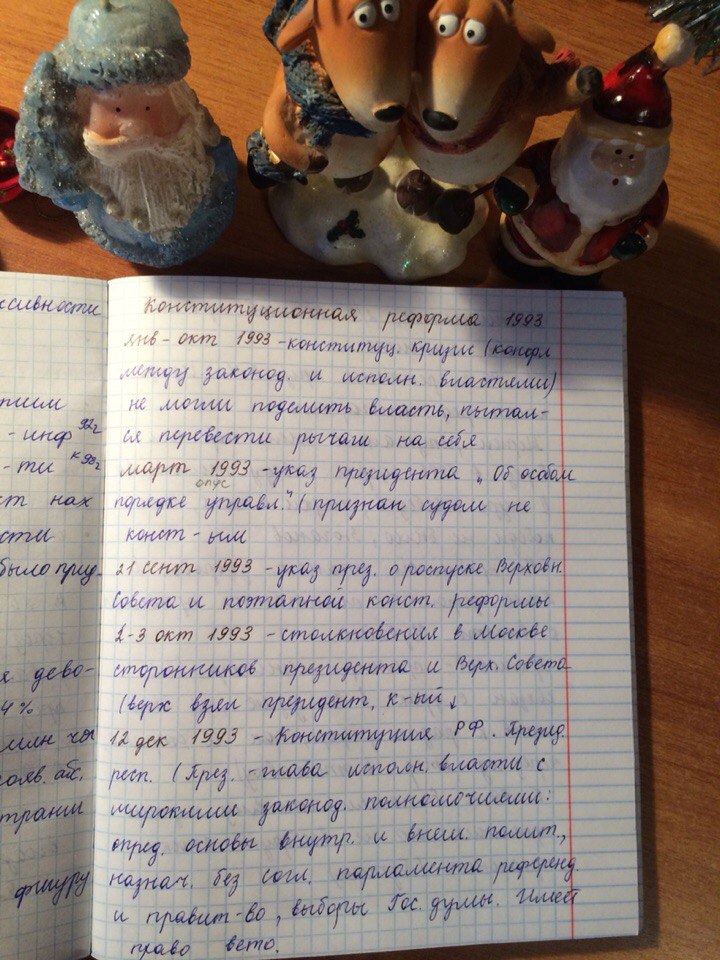 ксивности
тиим
- инф 92г
- ти к 98г
ст нах
сти
было при
я дево-
4%
млн ча
олв. авг.
трании
фигуру
Конституционная реформа 1993
янв - окт 1993 - конституц. кризис (конфл
между законод. и исполн. властями)
не могли поделить власть, пытал-
ся перевести рычаги на себя
март 1993 - указ президента „Об особом
опус
порядке управл." (признан судом не
конст-ым
21 сент 1993 - указ през. о роспуске Верховн.
Совета и поэтапной конст. реформы
2-3 окт 1993 - столкновения в Москве
сторонников президента и Верх. Совета
(верх взял президент, к-ый ↓
12 дек 1993 - Конституция РФ. Презид.
респ. (През. - глава исполн. власти с
широкими законод. полномочиями:
опред. основы внутр. и внеш. полит.,
назнач. без согл. парламента референд.
и правит-во, выборы Гос. думы. Имеет
право вето.